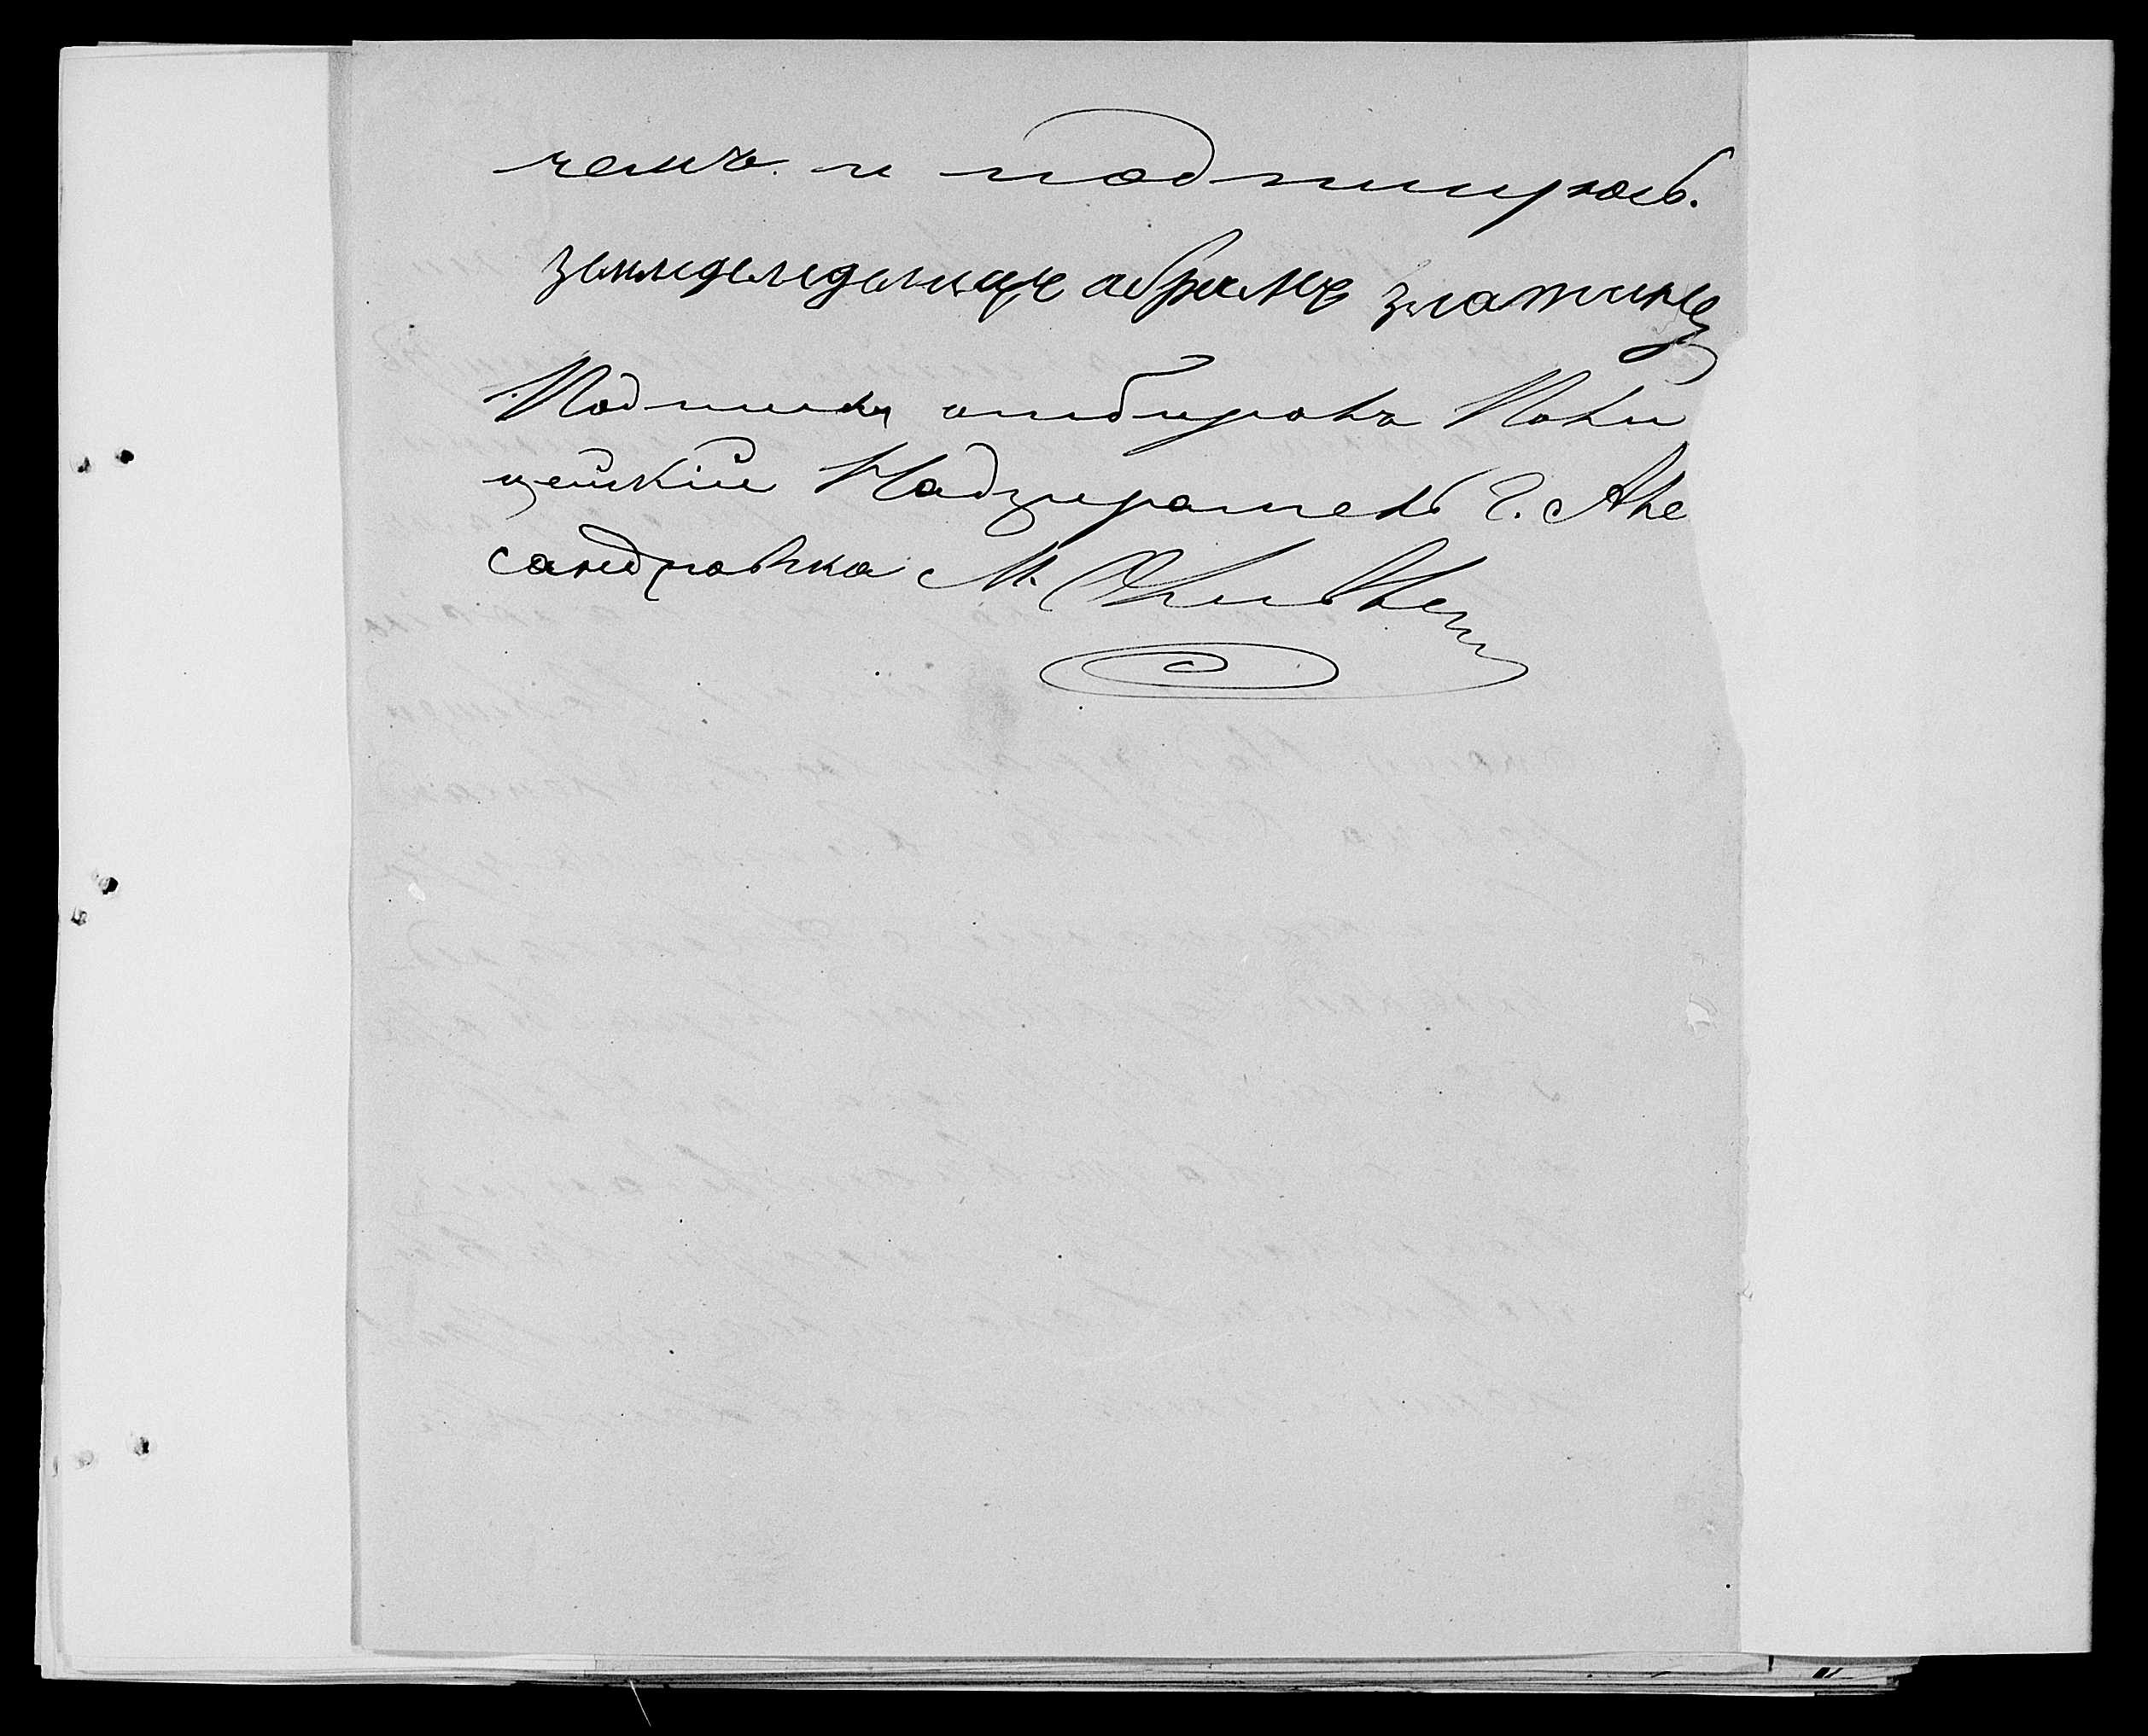 чемъ и подпишусь.
земледеледелецъ абрамъ златинъ
Подписку отбиралъ Поли
цейскій Надзиратель г. Але
сандровска М.